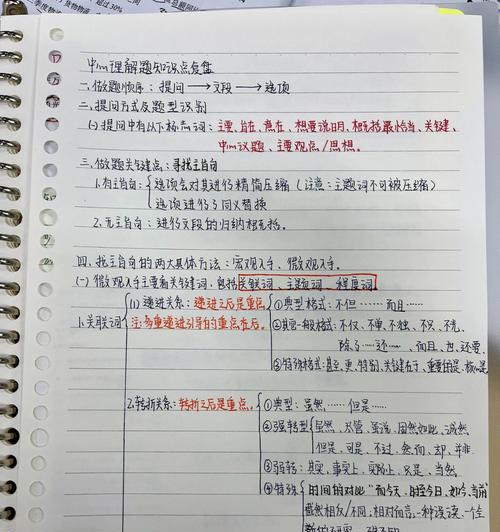 超过30%
中心理解题知识点复盘
一、做题顺序：提问→文段→选项
二、提问方式及题型识别
(一)提问中有以下标志词：主要、旨在、意在、想要说明、概括最恰当、关键、
中心议题、主要观点/思想。
三、做题关键点：寻找主旨句
1.有主旨句：选项会对其进行精简压缩（注意：主题词不可被压缩）
选项进行了同义替换
2.无主旨句：进行文段的归纳概括。
四、找主旨句的两大具体方法：宏观入手、微观入手。
(一)微观入手主要看关键词，包括关联词、主题词、程度词
1.关联词
(1)递进关系：递进之后是重点
注：多重递进引导的重点在后。
①典型格式：不但……而且……
②其它一般格式：不仅、不单、不独、不只、不光、
除了……还……、而且、也、还要
③特殊格式：甚至、更、特别、关键在于、重要的是、核心是
2.转折关系：转折之后是重点。
①典型：虽然……但是……
②强转型
虽然、尽管、虽说、固然如此、诚然
但是、可是、不过、然而、却、并非
③弱转：其实、事实上、实际上、只是、当然
④特殊
时间的对比“而今天、时至今日、如今、当前
截然相反/不同；相对而言、一种误读、一个